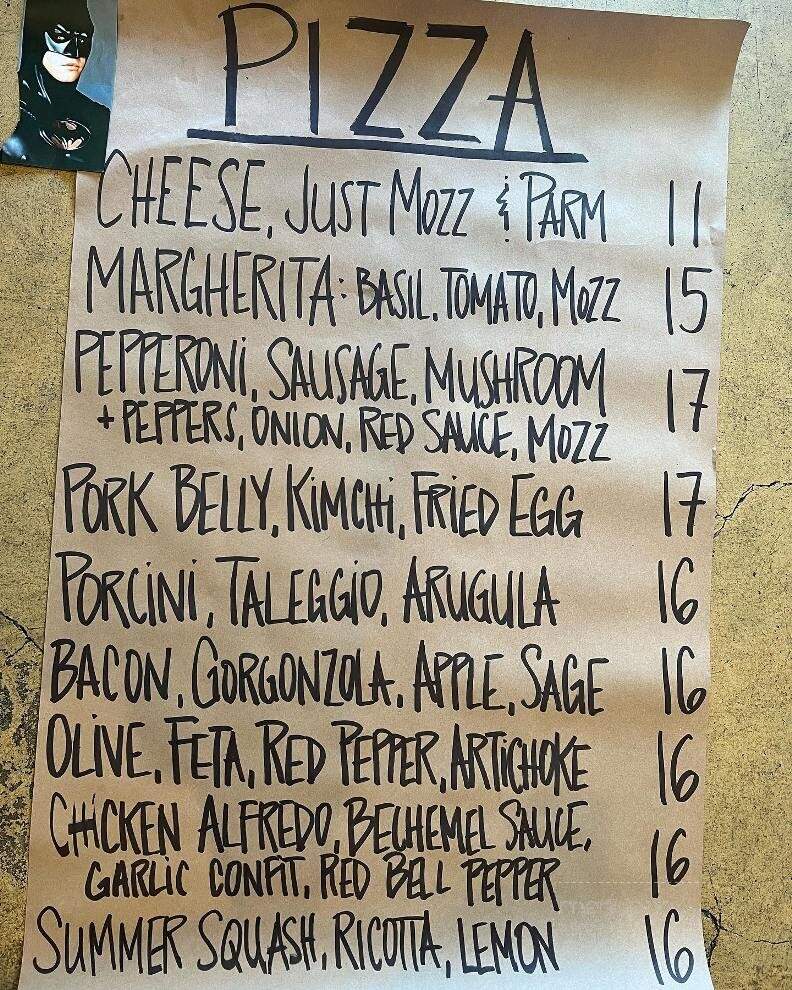 PIZZA
CHEESE, JUST MOZZ & PARM 11
MARGHERITA: BASIL, TOMATO, MOZZ 15
PEPPERONI, SAUSAGE, MUSHROOM 17
+ PEPPERS, ONION, RED SAUCE, MOZZ
PORK BELLY, KIMCHI, FRIED EGG 17
PORCINI, TALEGGIO, ARUGULA 16
BACON, GORGONZOLA, APPLE, SAGE 16
OLIVE, FETA, RED PEPPER, ARTICHOKE 16
CHICKEN ALFREDO, BECHEMEL SAUCE, 16
GARLIC CONFIT, RED BELL PEPPER
SUMMER SQUASH, RICOTTA, LEMON 16